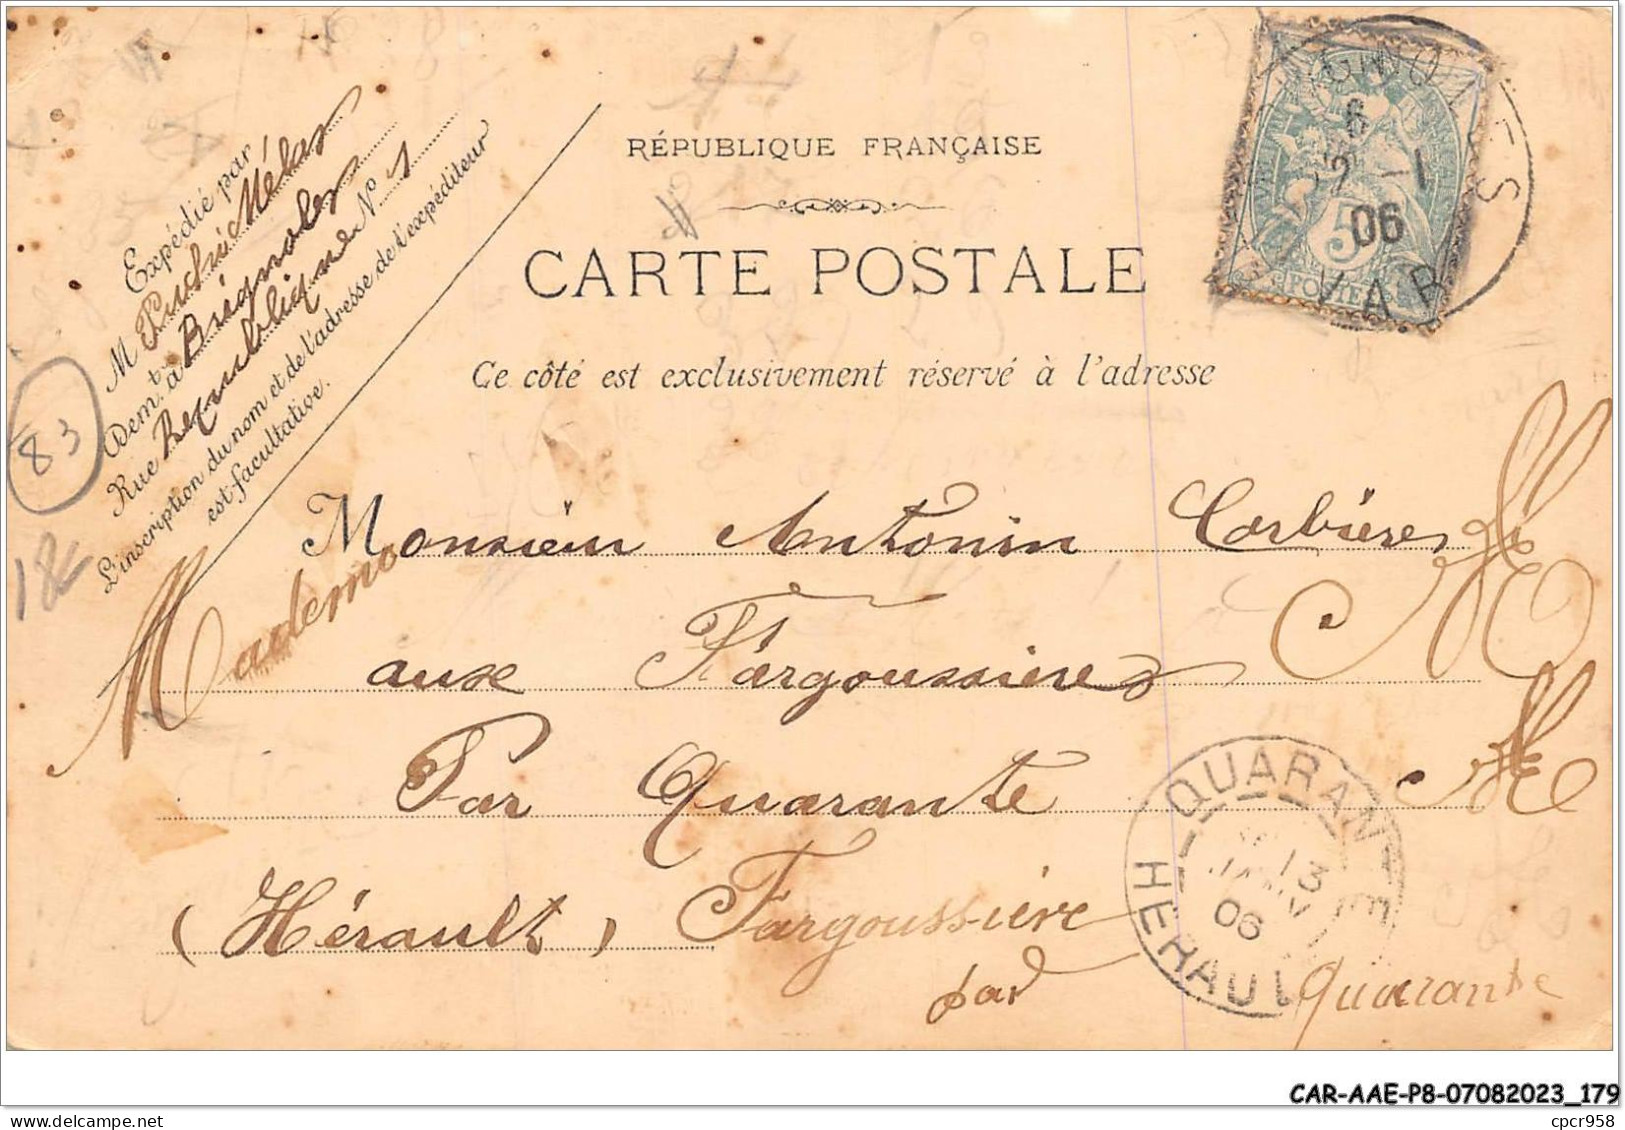 RÉPUBLIQUE FRANÇAISE
CARTE POSTALE
Ce côté est exclusivement réservé à l'adresse
Expédié par
M Puché Mélar
Dem.t à Brignoles
Rue République N° 1
L'inscription du nom et de l'adresse de l'expéditeur
est facultative.
83
Monsieur Antonin Corbières
aux Fargoussières
Par Quarante
(Hérault)
Fargoussière
par Quarante
POSTES
5
6
2 - 1
06
VAR
QUARANTE
13
JANV
06
HERAULT
CAR-AAE-P8-07082023_179
cpcr958